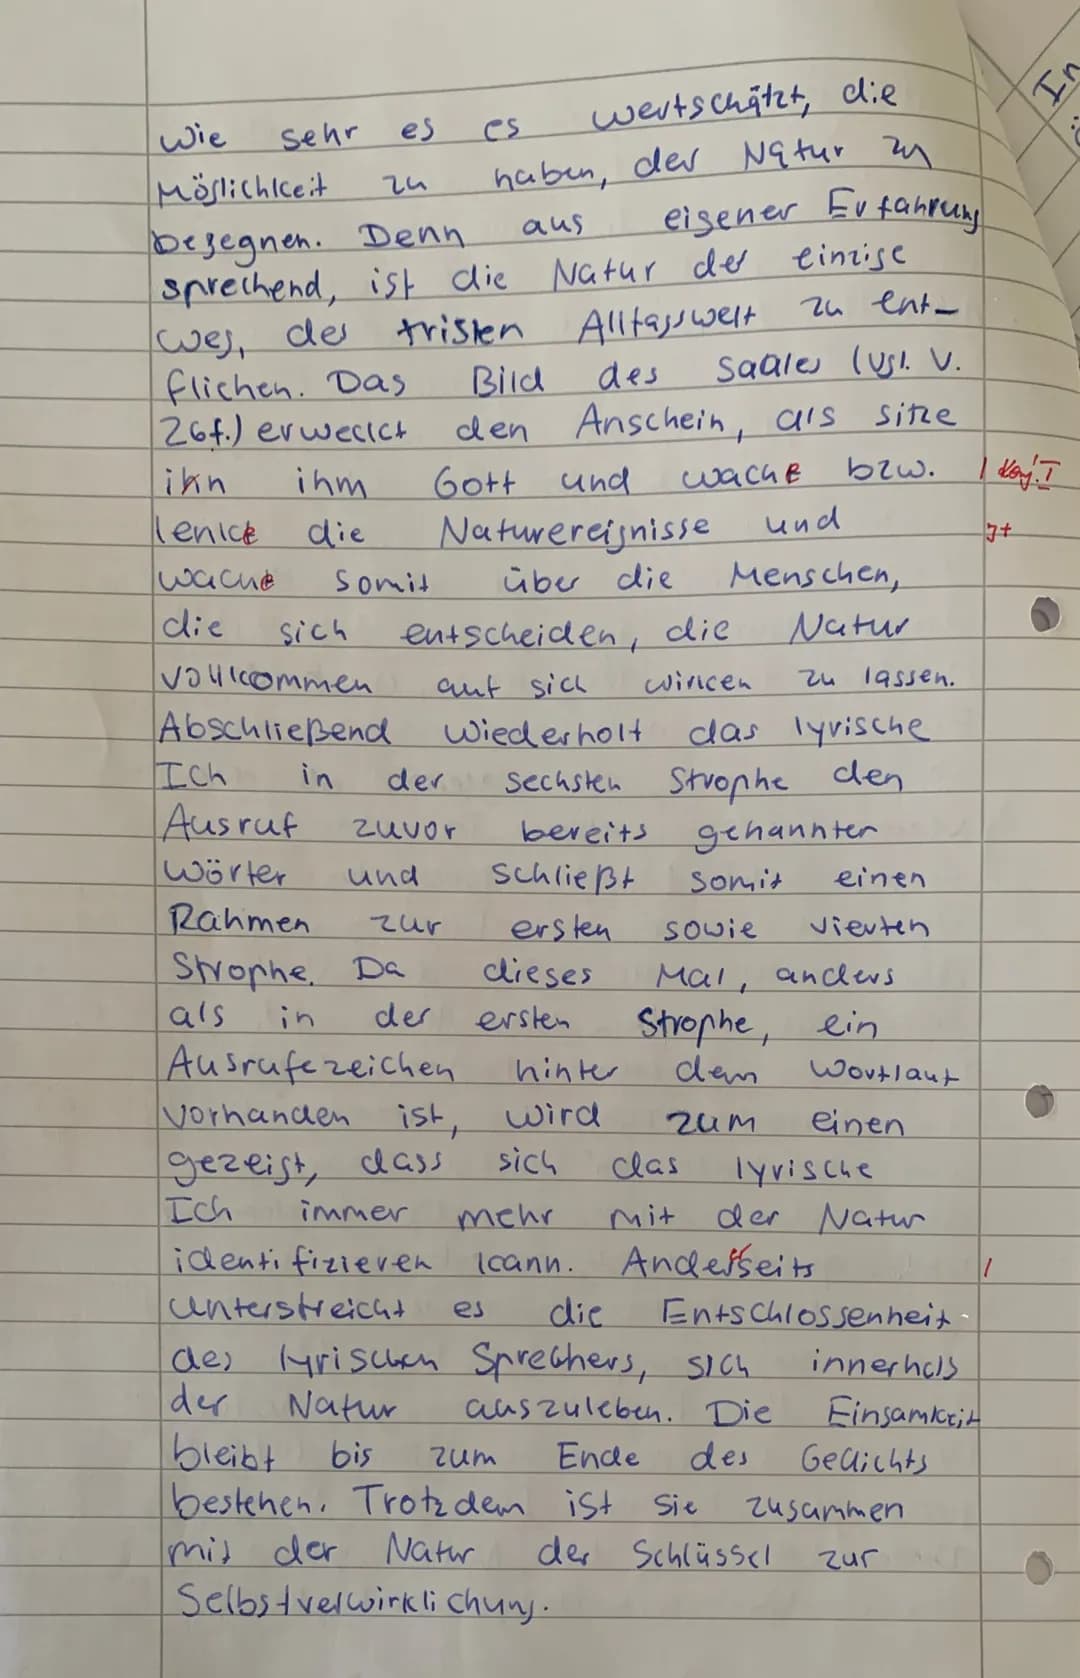 wie sehr es es wertschätzt, die
Möglichkeit zu haben, der Natur zu
begegnen. Denn aus eigener Erfahrung
sprechend, ist die Natur der einzige
Weg, der tristen Alltagswelt zu ent-
fliehen. Das Bild des Saales (vgl. V.
26f.) erweckt den Anschein, als sitze
ihm Gott und wache bzw. | Konj. I
lenke die Naturereignisse und
wache somit über die Menschen,
die sich entscheiden, die Natur
vollkommen auf sich wirken zu lassen.
Abschließend wiederholt das lyrische
Ich in der sechsten Strophe den
Ausruf zuvor bereits genannter
Wörter und schließt somit einen
Rahmen zur ersten sowie vierten
Strophe. Da dieses Mal, anders
als in der ersten Strophe, ein
Ausrufezeichen hinter dem Wortlaut
vorhanden ist, wird zum einen
gezeigt, dass sich das lyrische
Ich immer mehr mit der Natur
identifizieren kann. Anderseits |
unterstreicht es die Entschlossenheit
des lyrischen Sprechers, sich innerhalb
der Natur auszuleben. Die Einsamkeit
bleibt bis zum Ende des Gedichts
bestehen. Trotzdem ist sie zusammen
mit der Natur der Schlüssel zur
Selbstverwirklichung.